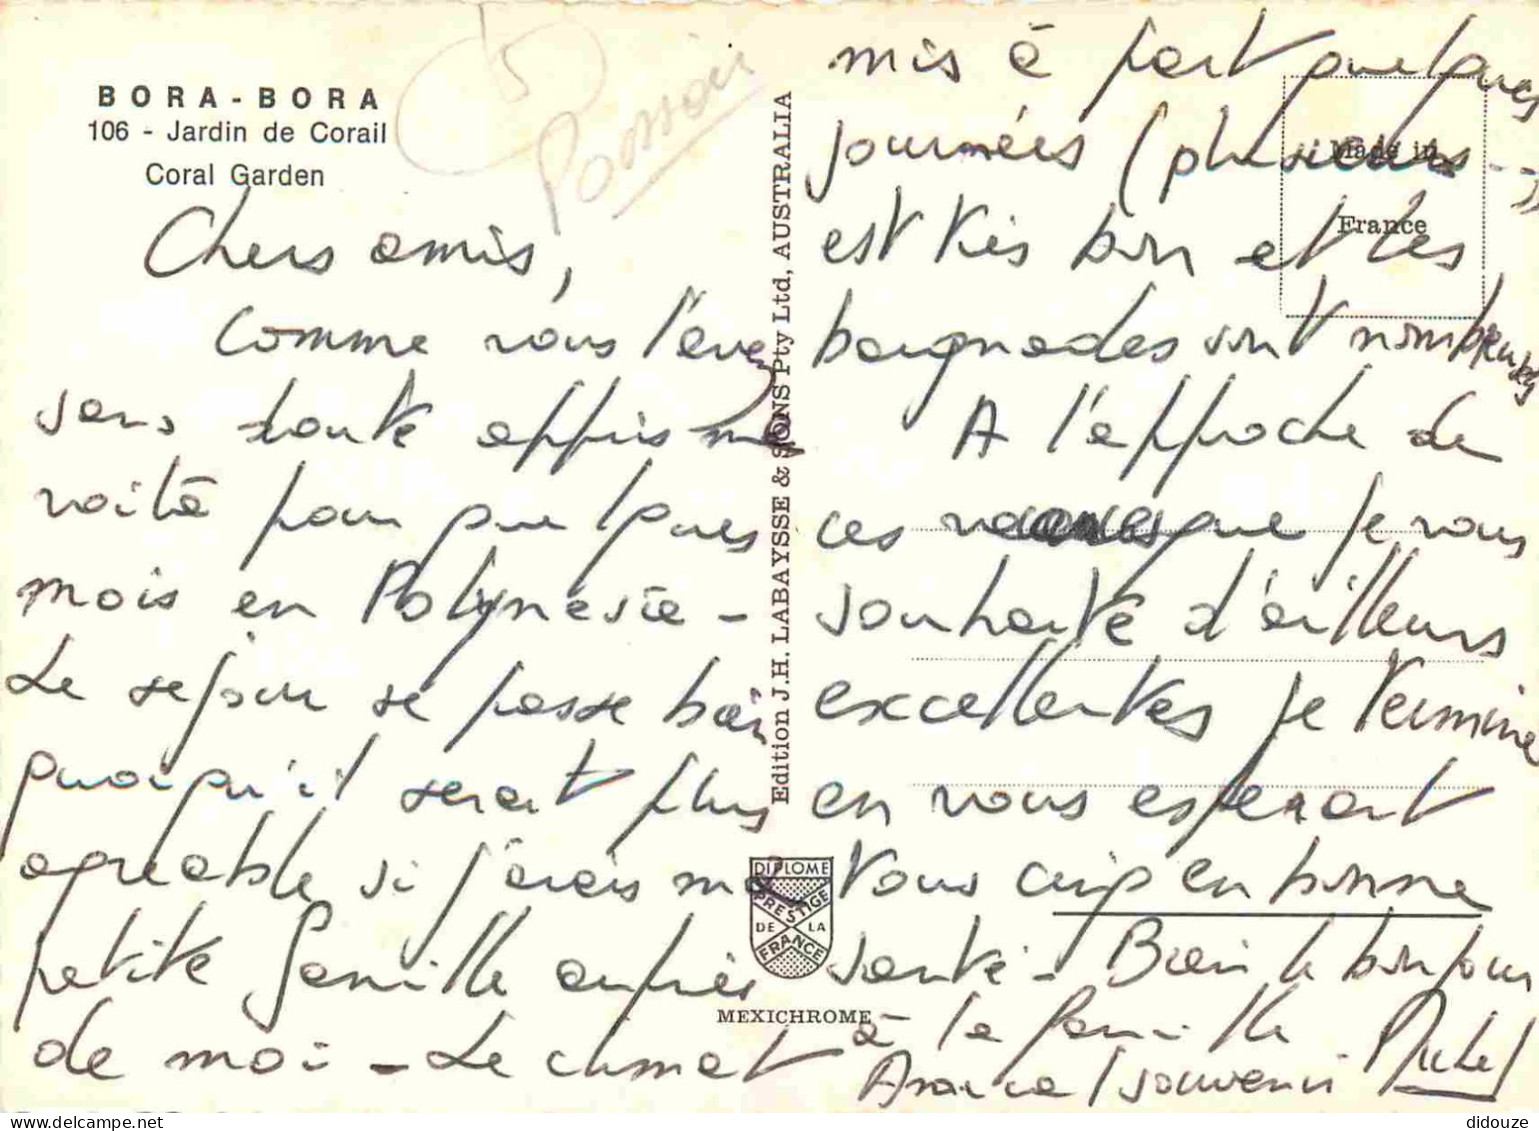 BORA - BORA
106 - Jardin de Corail
Coral Garden
Poisson
Chers amis,
Comme vous l'avez
sans doute appris me
voilà pour quelques
mois en Polynésie -
Le séjour se passe bien
quoiqu'il serait plus
agréable si j'avais ma
petite famille auprès
de moi - Le climat
Edition J.H. LABAYSSE & SONS Pty Ltd, AUSTRALIA
DIPLOME
PRESTIGE
DE LA
FRANCE
MEXICHROME
Made in
France
mis à part quelques
journées (plusieurs --)
est très bon et les
baignades sont nombreuses
A l'approche de
ces vacances que je vous
souhaite d'ailleurs
excellentes je termine
en vous espérant
tous cinq en bonne
santé - Bien le bonjour
à la famille
Amical souvenir Michel
didouze